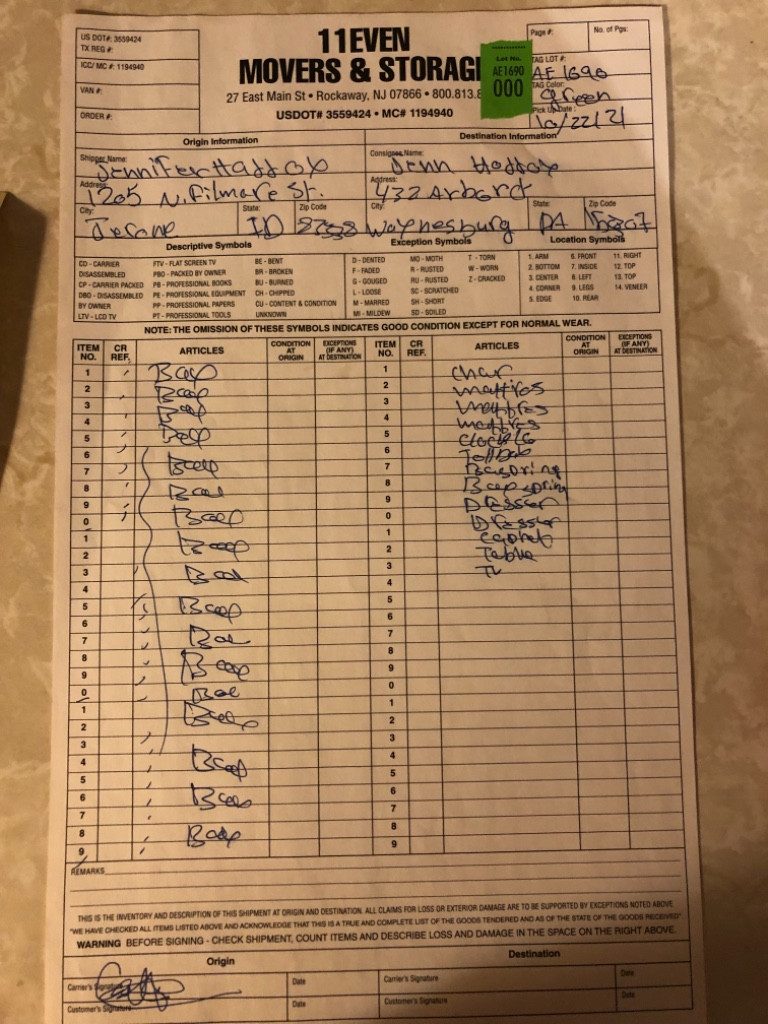 US DOT#: 3559424
TX REG #:
ICC/ MC #: 1194940
VAN #:
ORDER #:
11EVEN
MOVERS & STORAG
27 East Main St • Rockaway, NJ 07866 • 800.813.
USDOT# 3559424 • MC# 1194940
Lot No.
AE1690
000
Page #:
No. of Pgs:
TAG LOT #:
AE 1690
TAG Color:
green
Pick Up Date:
10/22/21
Origin Information
Destination Information
Shipper Name:
Consignee Name:
Jenn
Address:
1205 N. Filmore St.
Address:
432
City:
State: ID
Zip Code
City: Waynesburg
State: PA
Zip Code
Descriptive Symbols
Exception Symbols
Location Symbols
CD - CARRIER
DISASSEMBLED
CP - CARRIER PACKED
DBO - DISASSEMBLED
BY OWNER
LTV - LCD TV
FTV - FLAT SCREEN TV
PBO - PACKED BY OWNER
PB - PROFESSIONAL BOOKS
PE - PROFESSIONAL EQUIPMENT
PP - PROFESSIONAL PAPERS
PT - PROFESSIONAL TOOLS
BE - BENT
BR - BROKEN
BU - BURNED
CH - CHIPPED
CU - CONTENT & CONDITION
UNKNOWN
D - DENTED
F - FADED
G - GOUGED
L - LOOSE
M - MARRED
MI - MILDEW
MO - MOTH
R - RUSTED
RU - RUSTED
SC - SCRATCHED
SH - SHORT
SO - SOILED
T - TORN
W - WORN
Z - CRACKED
1. ARM
2. BOTTOM
3. CENTER
4. CORNER
5. EDGE
6. FRONT
7. INSIDE
8. LEFT
9. LEGS
10. REAR
11. RIGHT
12. TOP
13. TOP
14. VENEER
NOTE: THE OMISSION OF THESE SYMBOLS INDICATES GOOD CONDITION EXCEPT FOR NORMAL WEAR.
ITEM NO.
CR REF.
ARTICLES
CONDITION AT ORIGIN
EXCEPTIONS (IF ANY) AT DESTINATION
ITEM NO.
CR REF.
ARTICLES
CONDITION AT ORIGIN
EXCEPTIONS (IF ANY) AT DESTINATION
1 1 char
2 2 mattras
3 3 mattras
4 4 mattras
5 5
6 6
7 7
8 8
9 9 Dresser
0 0 Dresser
1 1
2 2 Table
3 3 TV
4 4
5 5
6 6
7 7
8 8
9 9
0 0
1 1
2 2
3 3
4 4
5 5
6 6
7 7
8 8
9 9
REMARKS
THIS IS THE INVENTORY AND DESCRIPTION OF THIS SHIPMENT AT ORIGIN AND DESTINATION. ALL CLAIMS FOR LOSS OR EXTERIOR DAMAGE ARE TO BE SUPPORTED BY EXCEPTIONS NOTED ABOVE.
"WE HAVE CHECKED ALL ITEMS LISTED ABOVE AND ACKNOWLEDGE THAT THIS IS A TRUE AND COMPLETE LIST OF THE GOODS TENDERED AND AS OF THE STATE OF THE GOODS RECEIVED"
WARNING BEFORE SIGNING - CHECK SHIPMENT, COUNT ITEMS AND DESCRIBE LOSS AND DAMAGE IN THE SPACE ON THE RIGHT ABOVE.
Origin
Destination
Carrier's Signature
Date
Carrier's Signature
Date
Customer's Signature
Date
Customer's Signature
Date